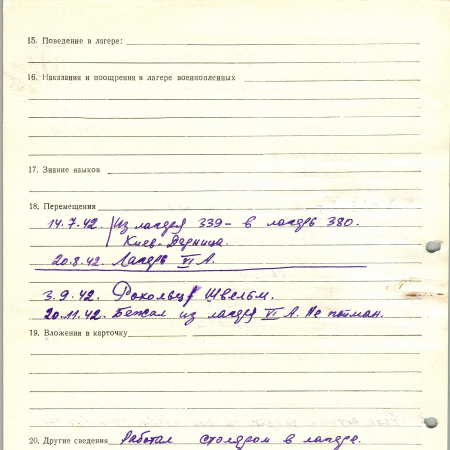 15. Поведение в лагере:
16. Наказания и поощрения в лагере военнопленных
17. Знание языков
18. Перемещения
14.7.42. Из лагеря 339 - в лагерь 380.
Киев-Дарница.
20.8.42. Лагерь VI А.
3.9.42. Швельм.
20.11.42. Бежал из лагеря VI А. Не пойман.
19. Вложения в карточку
20. Другие сведения Работал столяром в лагере.